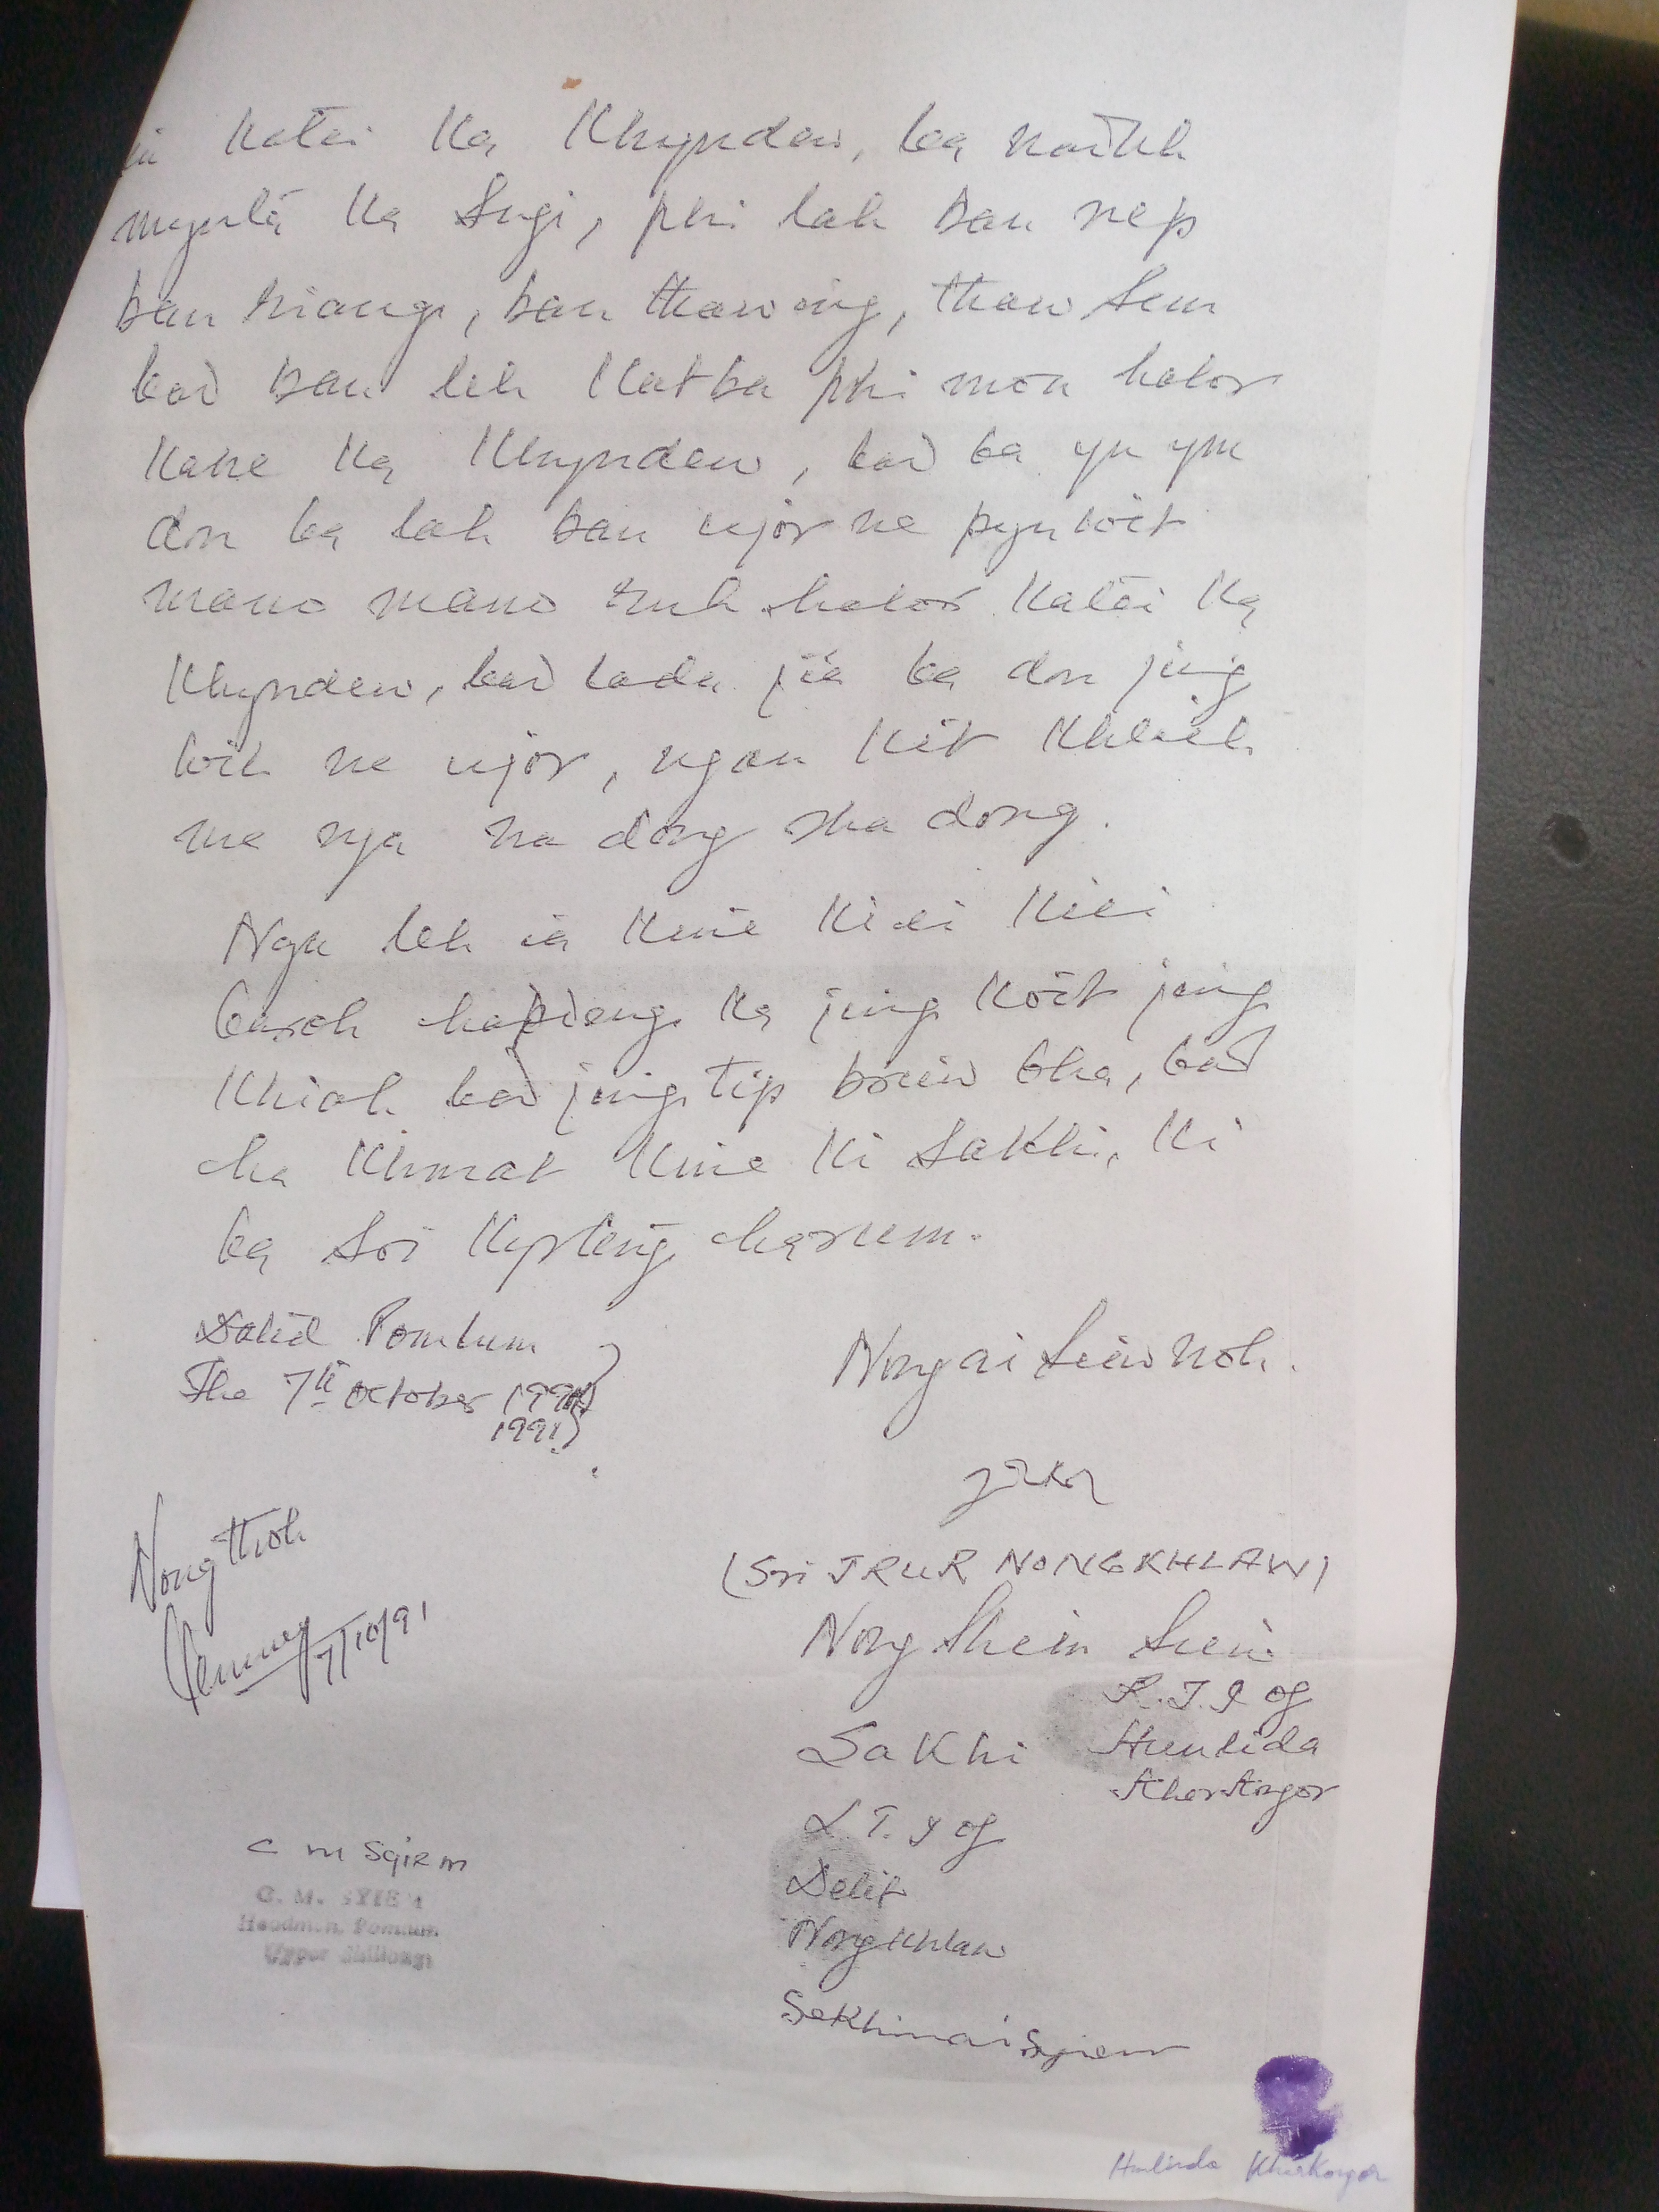 ia katei ka Khyndew, ba naduh
mynta ka sngi, phi lah ban rep
ban riang, ban thaw ing, thaw sem
bad ban leh katba phi mon halor
kane ka Khyndew, bad ba yn ym
don ba lah ban ujor ne pynwit
mano mano ruh halor katei ka
Khyndew, bad lada jia ba don jing
wit ne ujor, ngan kit khlieh
ma nga na dong sha dong.
Nga leh ia kine kiei kiei
baroh hapdeng ka jing koit jing
khiah bad jing tip briew bha, bad
ha khmat kine ki sakhi, ki
ba soi kyrteng harum.
Dated Pomlum
The 7th October
1991
Nong ai siew noh.
(Sri TRUR NONGKHLAW)
Nongthoh
7/10/91
Nong Shim Siew
R.T.I of
Hunlida
Kharkongor
Sakhi
L.T.I of
Delit
Nongkhlaw
C M Syiem
G. M. SYIEM
Headman, Pomlum
Upper Shillong
Sekhimai Syiem
Hunlinda Kharkongor